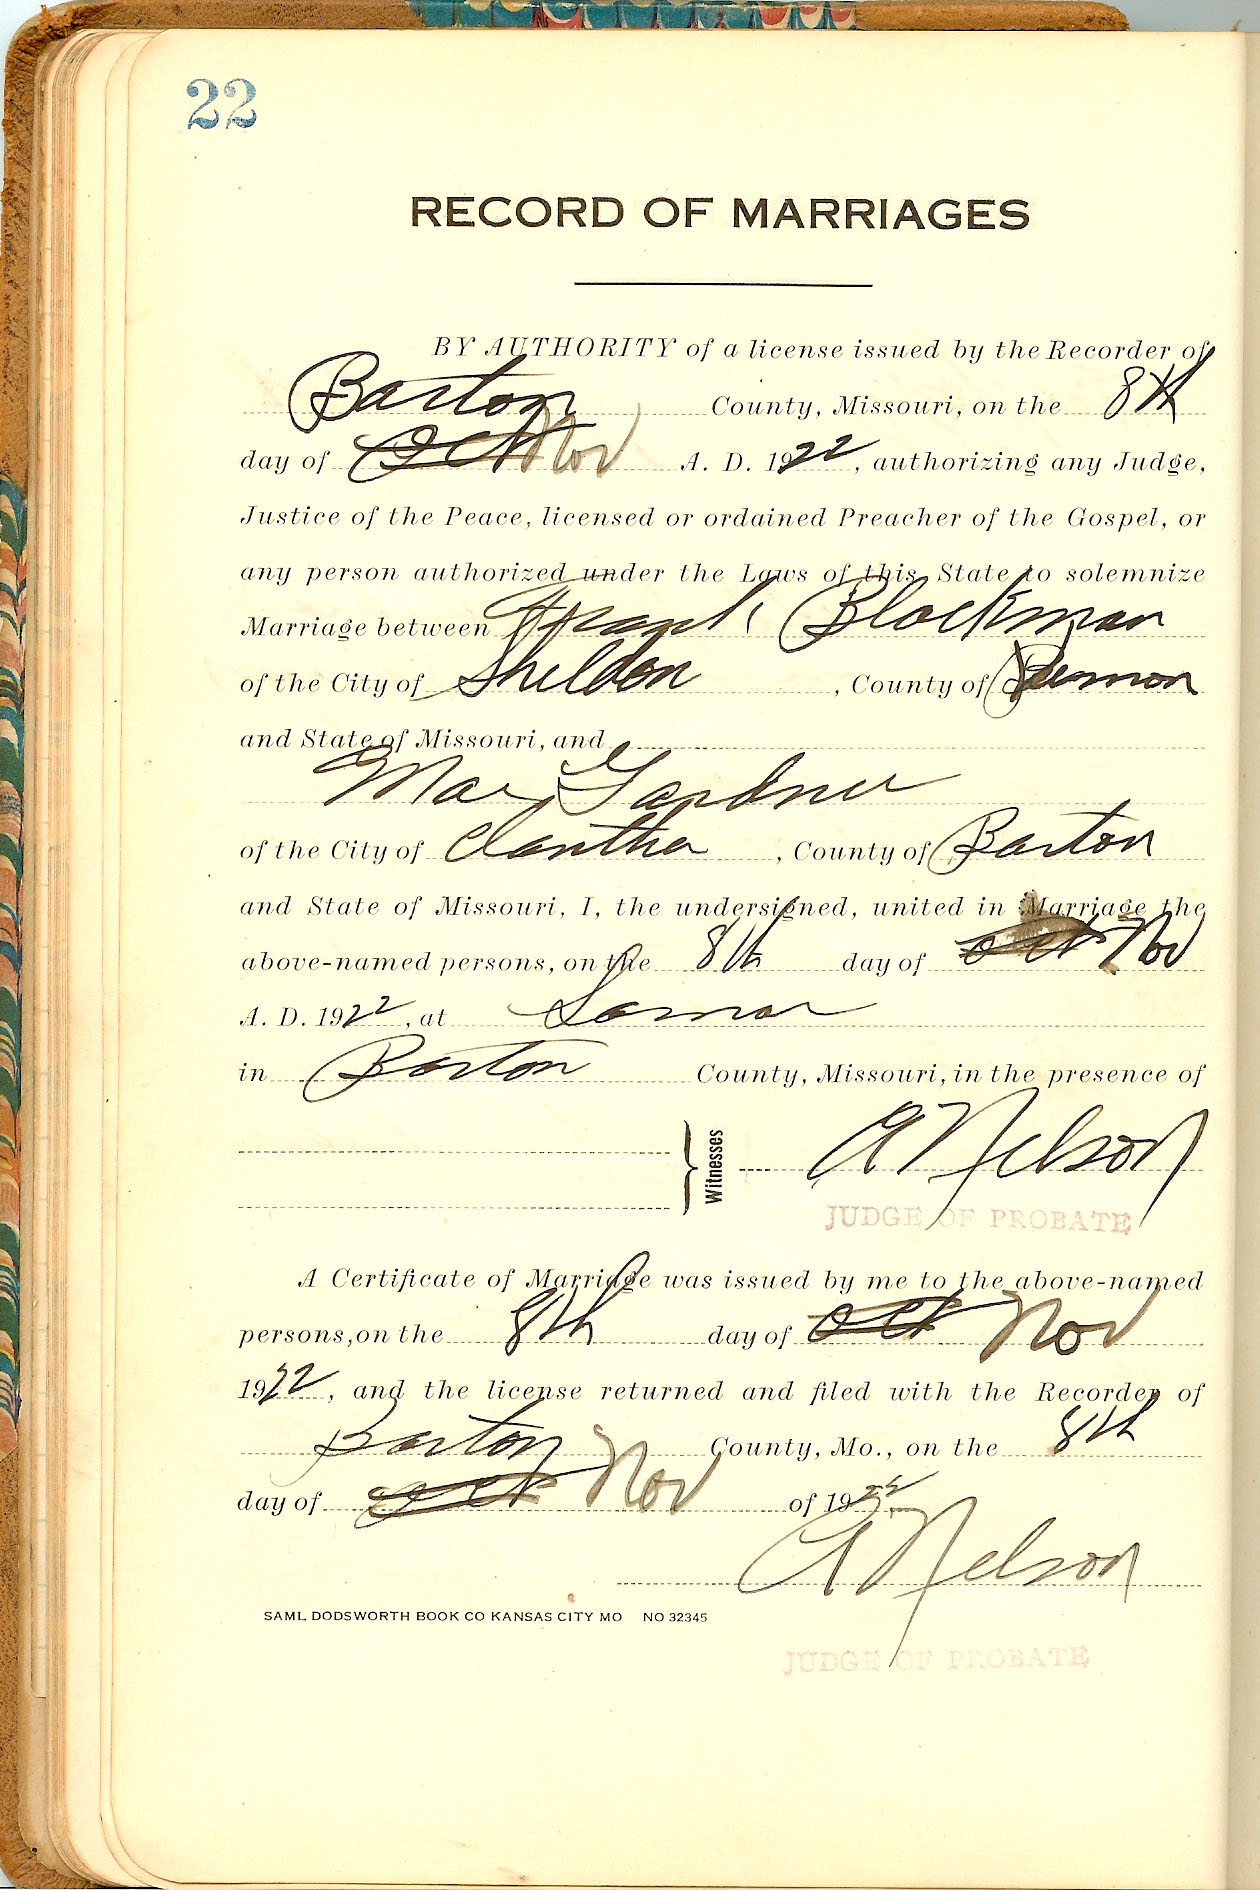 22
RECORD OF MARRIAGES
BY AUTHORITY of a license issued by the Recorder of
Barton County, Missouri, on the 8th
day of Oct Nov A. D. 1922, authorizing any Judge,
Justice of the Peace, licensed or ordained Preacher of the Gospel, or
any person authorized under the Laws of this State to solemnize
Marriage between Frank Blockman
of the City of Sheldon, County of Vernon
and State of Missouri, and
Mae Gardner
of the City of , County of Barton
and State of Missouri, I, the undersigned, united in Marriage the
above-named persons, on the 8th day of Oct Nov
A. D. 1922, at Lamar
in Barton County, Missouri, in the presence of
Witnesses A Nelson
JUDGE OF PROBATE
A Certificate of Marriage was issued by me to the above-named
persons, on the 8th day of Oct Nov
1922, and the license returned and filed with the Recorder of
Barton County, Mo., on the 8th
day of Oct Nov of 1922
A Nelson
SAML DODSWORTH BOOK CO KANSAS CITY MO NO 32345
JUDGE OF PROBATE